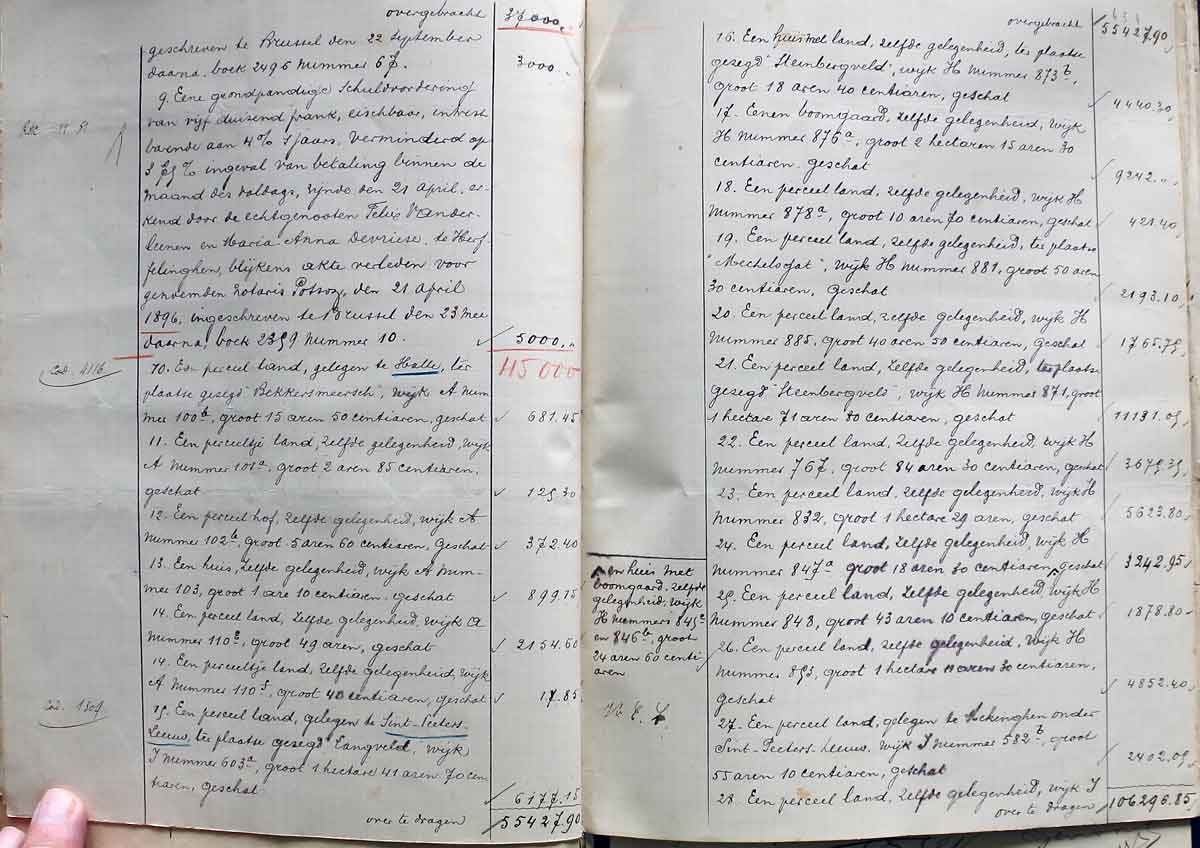 overgebracht 37000,
geschreven te Brussel den 22 September
daarna, boek 2496 nummer 67. 3000,
9. Eene grondpandige schuldvordering
van vijf duizend frank, eischbaar, intrest
barende aan 4% 's jaars, verminderd op
ingeval van betaling binnen de
maand des valdags, zijnde den 21 April, er-
kend door de echtgenooten Felix Vander-
leenen en Maria Anna Devriese, te Herf-
felinghen, blijkens akte verleden voor
genoemden Notaris den 21 April
1896, ingeschreven te Brussel den 23 Mei
daarna, boek 2359 nummer 10. 5000,"
115000
Cad. 4116.
10. Een perceel land, gelegen te Halle, ter
plaatse gezegd "Bekkersmeersch", wijk A num-
mer 100b, groot 15 aren 50 centiaren, geschat 681.45
11. Een perceeltje land, zelfde gelegenheid, wijk
A nummer 101a, groot 2 aren 85 centiaren,
geschat 125.30
12. Een perceel hof, zelfde gelegenheid, wijk A
nummer 102b, groot 5 aren 60 centiaren, geschat 372.40
13. Een huis, zelfde gelegenheid, wijk A num-
mer 103, groot 1 are 10 centiaren, geschat 899.75
14. Een perceel land, zelfde gelegenheid, wijk A
nummer 110e, groot 49 aren, geschat 2154.60
14. Een perceeltje land, zelfde gelegenheid, wijk
A nummer 110f, groot 40 centiaren, geschat 17.85
Cad. 1509.
15. Een perceel land, gelegen te Sint-Peeters-
Leeuw, ter plaatse gezegd "Langveld", wijk
J nummer 603a, groot 1 hectare 41 aren 70 cen-
tiaren, geschat 6177.15
over te dragen 55427.90
overgebracht 55427.90
16. Een huis met land, zelfde gelegenheid, ter plaatse
gezegd "Steenbergveld", wijk H nummer 873b,
groot 18 aren 40 centiaren, geschat 4440.30
17. Eenen boomgaard, zelfde gelegenheid, wijk
H nummer 876a, groot 2 hectaren 15 aren 30
centiaren, geschat 9242.,,
18. Een perceel land, zelfde gelegenheid, wijk H
nummer 878a, groot 10 aren 70 centiaren, geschat 421.40
19. Een perceel land, zelfde gelegenheid, ter plaatse
"Mechelsgat", wijk H nummer 881, groot 50 aren
30 centiaren, geschat 2193.10
20. Een perceel land, zelfde gelegenheid, wijk H
nummer 885, groot 40 aren 50 centiaren, geschat 1765.75
21. Een perceel land, zelfde gelegenheid, ter plaatse
gezegd "Steenbergveld", wijk H nummer 871, groot
1 hectare 71 aren 80 centiaren, geschat 11191.05
22. Een perceel land, zelfde gelegenheid, wijk H
nummer 767, groot 84 aren 30 centiaren, geschat 3675.35
23. Een perceel land, zelfde gelegenheid, wijk H
nummer 832, groot 1 hectare 29 aren, geschat 5623.80
24. Een perceel land, zelfde gelegenheid, wijk H
nummer 847a groot 18 aren 30 centiaren, geschat 3242.95
en huis met
boomgaard, zelfde
gelegenheid, wijk
H nummers 845a
en 846b, groot
24 aren 60 centi-
aren
25. Een perceel land, zelfde gelegenheid, wijk H
nummer 848, groot 43 aren 10 centiaren, geschat 1878.80
26. Een perceel land, zelfde gelegenheid, wijk H
nummer 853, groot 1 hectare 11 aren 30 centiaren,
geschat 4852.40
27. Een perceel land, gelegen te onder
Sint-Peeters-Leeuw, wijk J nummer 582b, groot
55 aren 10 centiaren, geschat 2402.05
28. Een perceel land, zelfde gelegenheid, wijk J
over te dragen 106296.85